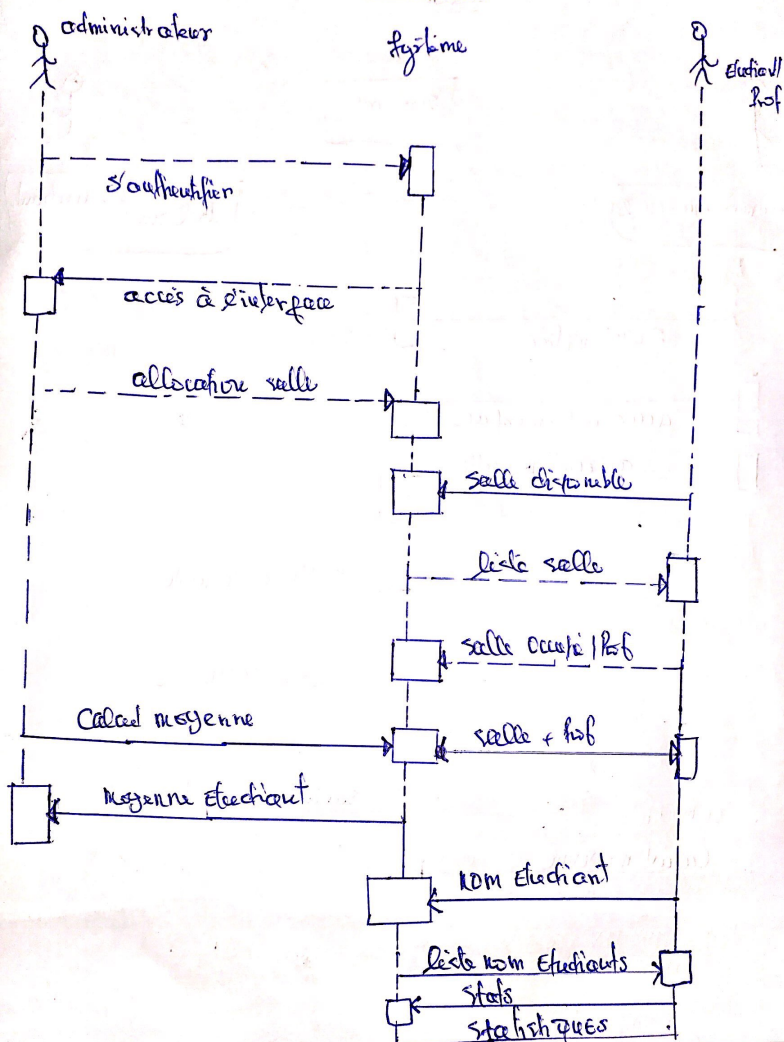 administrateur
Système
Etudiant/
Prof
s'authentifier
accès à l'interface
allocation salle
salle disponible
liste salle
salle occupé / Prof
Calcul moyenne
salle + Prof
moyenne Etudiant
nom Etudiant
liste nom Etudiants
Stats
Statistiques